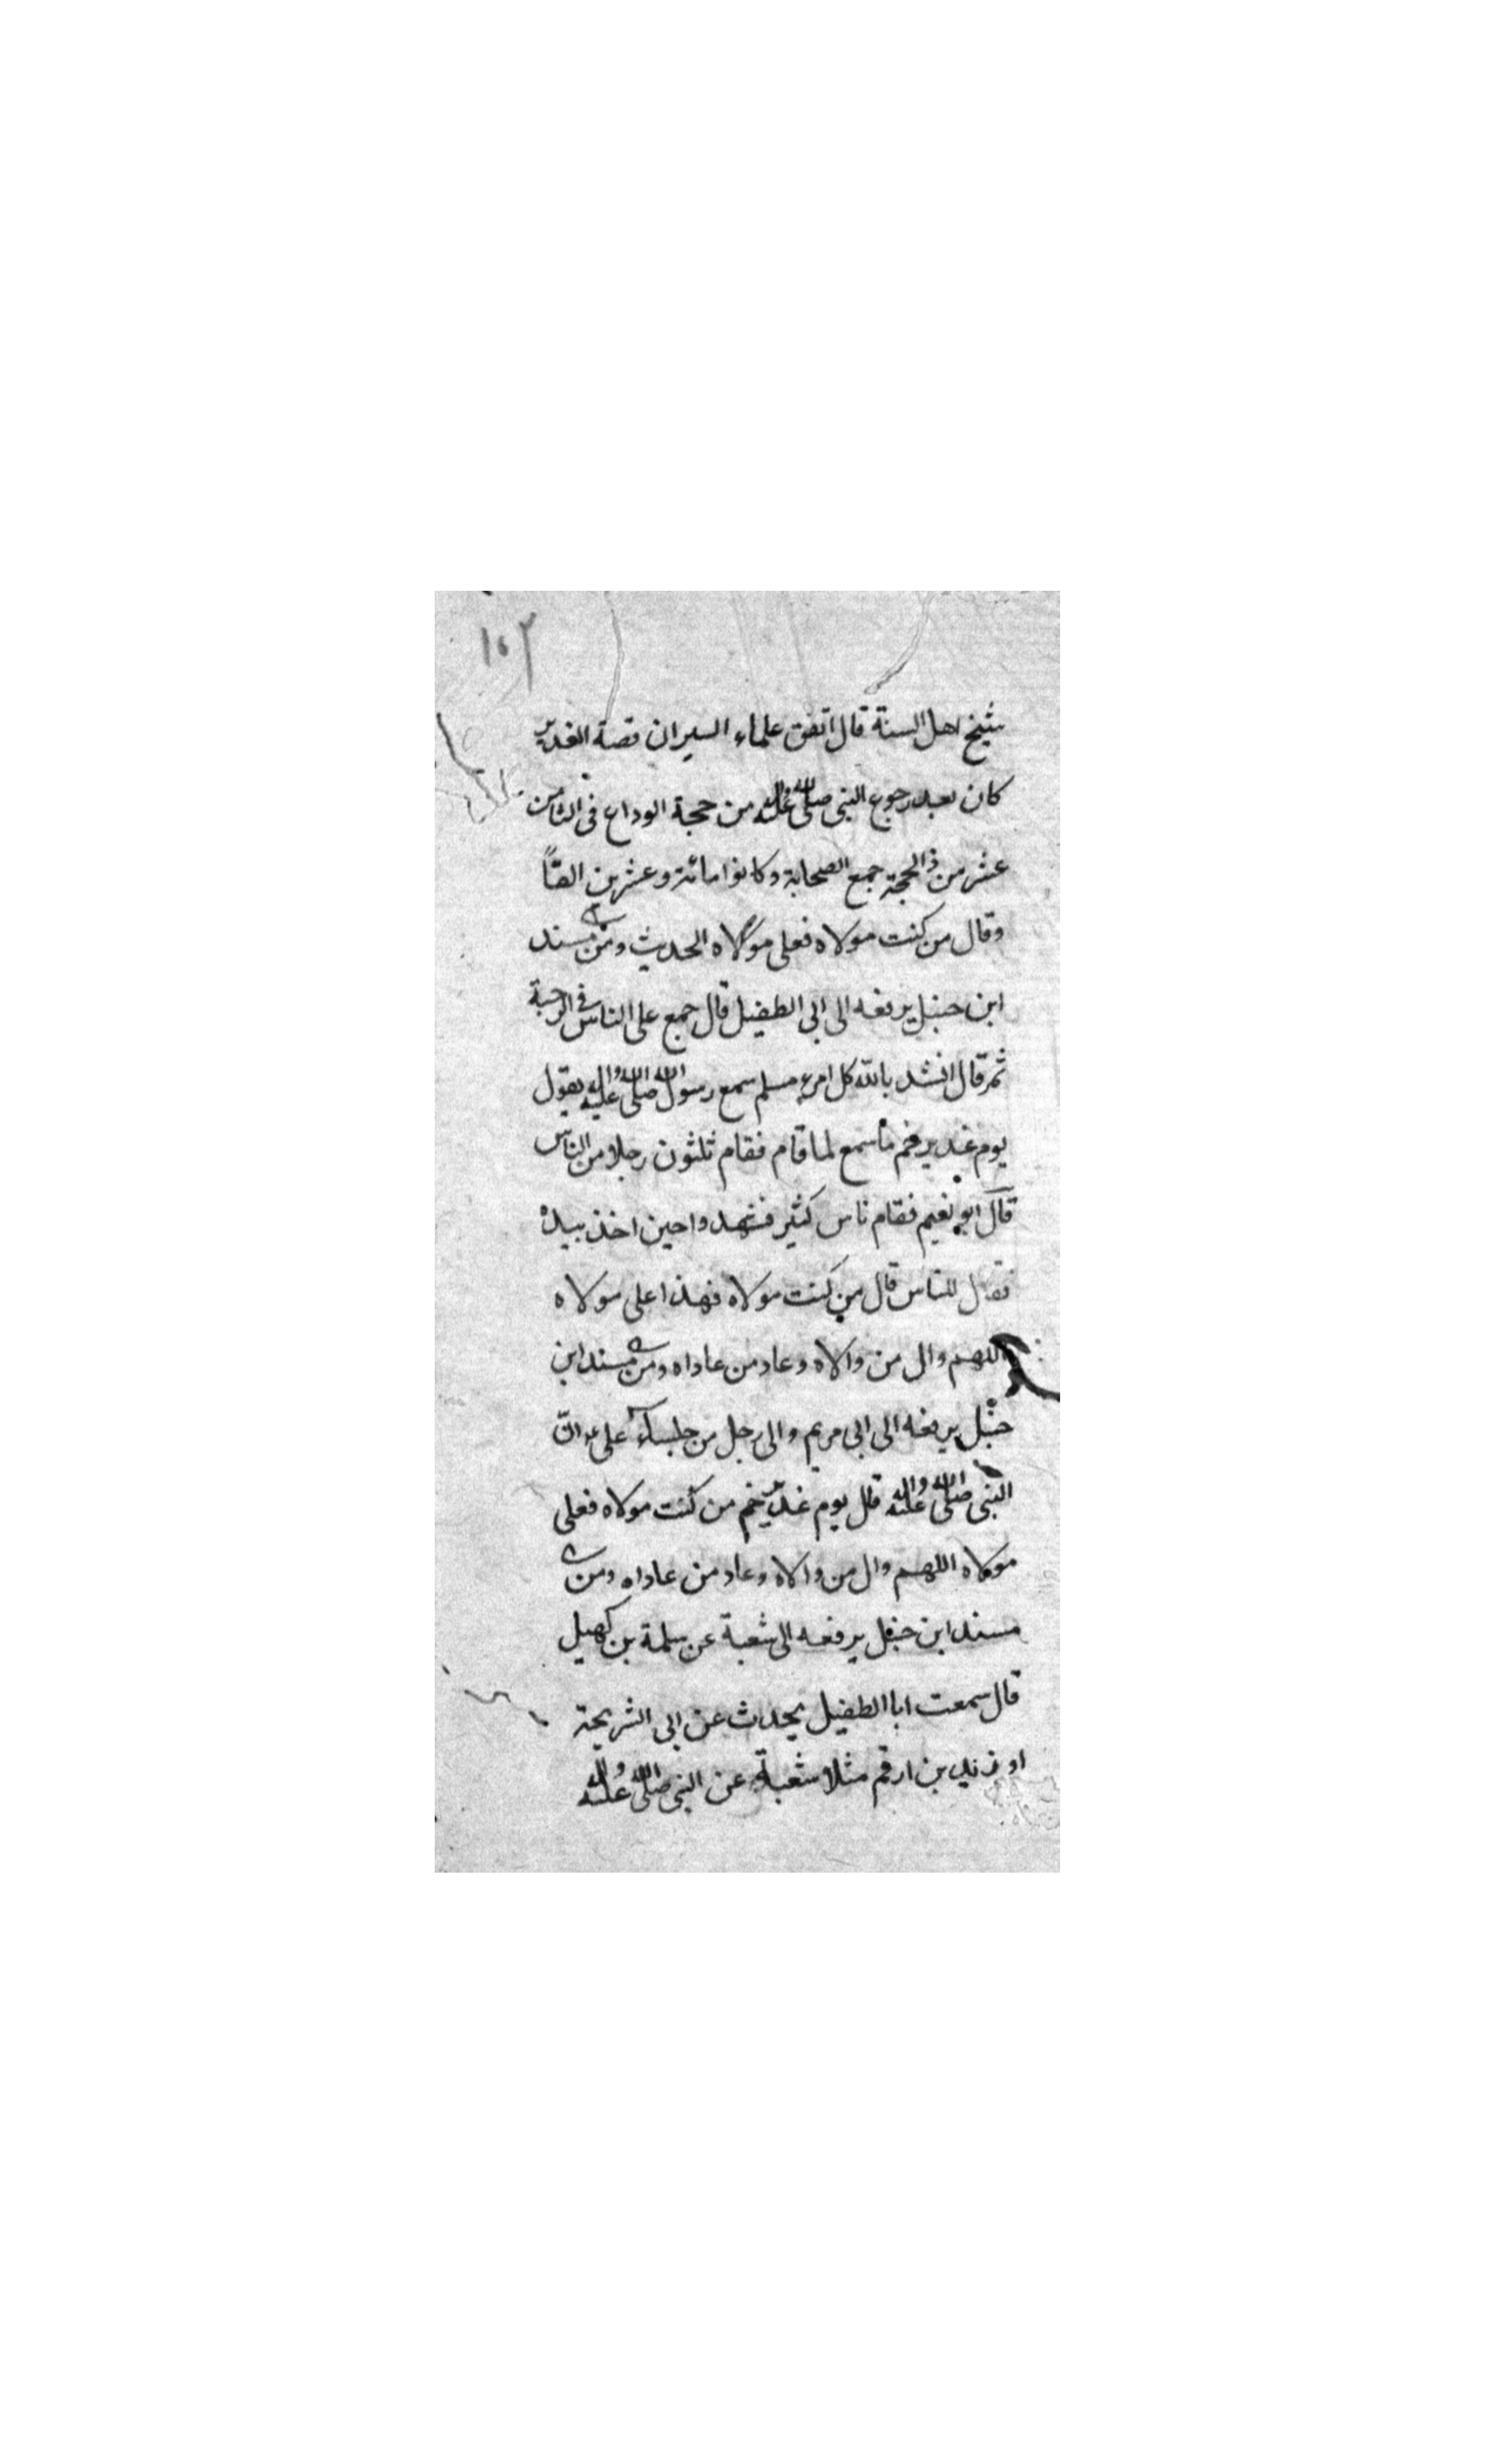 ١٥٢
شيخ اهل السنة قال اتفق علماء السير ان قصة الغدير
كان بعد رجوع النبي صلى الله عليه واله من حجة الوداع في الثامن
عشر من ذالحجة جمع الصحابة وكانوا مائة وعشرين الفاً
وقال من كنت مولاه فعلى مولاه الحديث ومن مسند
ابن حنبل يرفعه الى ابى الطفيل قال جمع على الناس في الرحبة
ثم قال انشد بالله كل امرء مسلم سمع رسول الله صلى الله عليه واله يقول
يوم غدير خم ما سمع لما قام فقام ثلثون رجلا من الناس
قال ابو نعيم فقام ناس كثير فشهدوا حين اخذ بيده
فقال للناس قال من كنت مولاه فهذا على مولاه
اللهم وال من والاه وعاد من عاداه ومن مسند ابن
حنبل يرفعه الى ابى مريم والى رجل من جلساء على ع ان
النبى صلى الله عليه واله قال يوم غدير خم من كنت مولاه فعلى
مولاه اللهم وال من والاه وعاد من عاداه ومن
مسند ابن حنبل يرفعه الى شعبة عن سلمة بن كهيل
قال سمعت ابا الطفيل يحدث عن ابى الشريحة
او زيد بن ارقم مثلا شعبة عن النبى صلى الله عليه واله